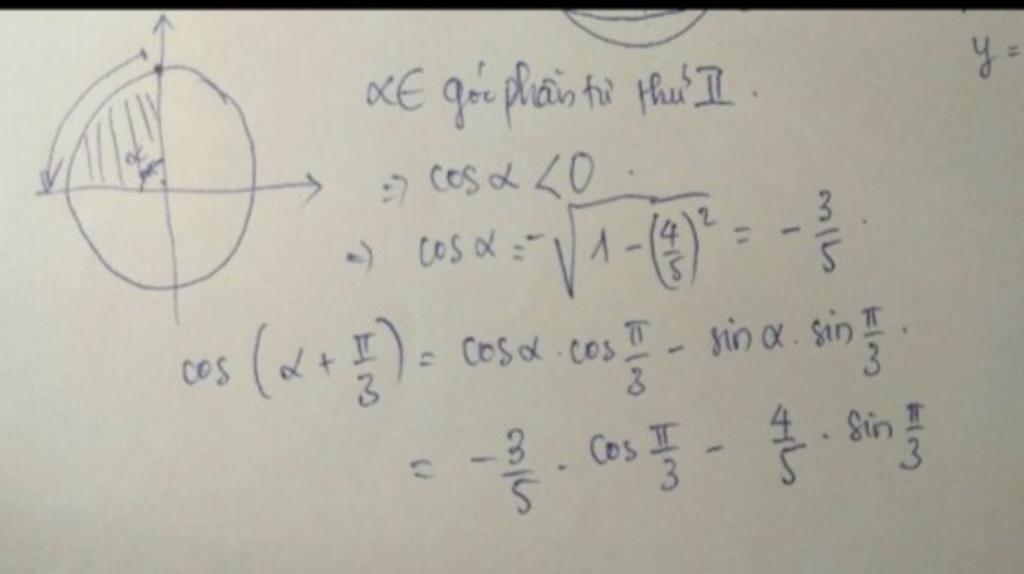 y =
α ∈ góc phần tư thứ II.
α
=> cos α < 0.
=> cos α = -√(1 - (4/5)²) = - 3/5.
cos (α + π/3) = cos α . cos π/3 - sin α . sin π/3.
= - 3/5 . cos π/3 - 4/5 . sin π/3